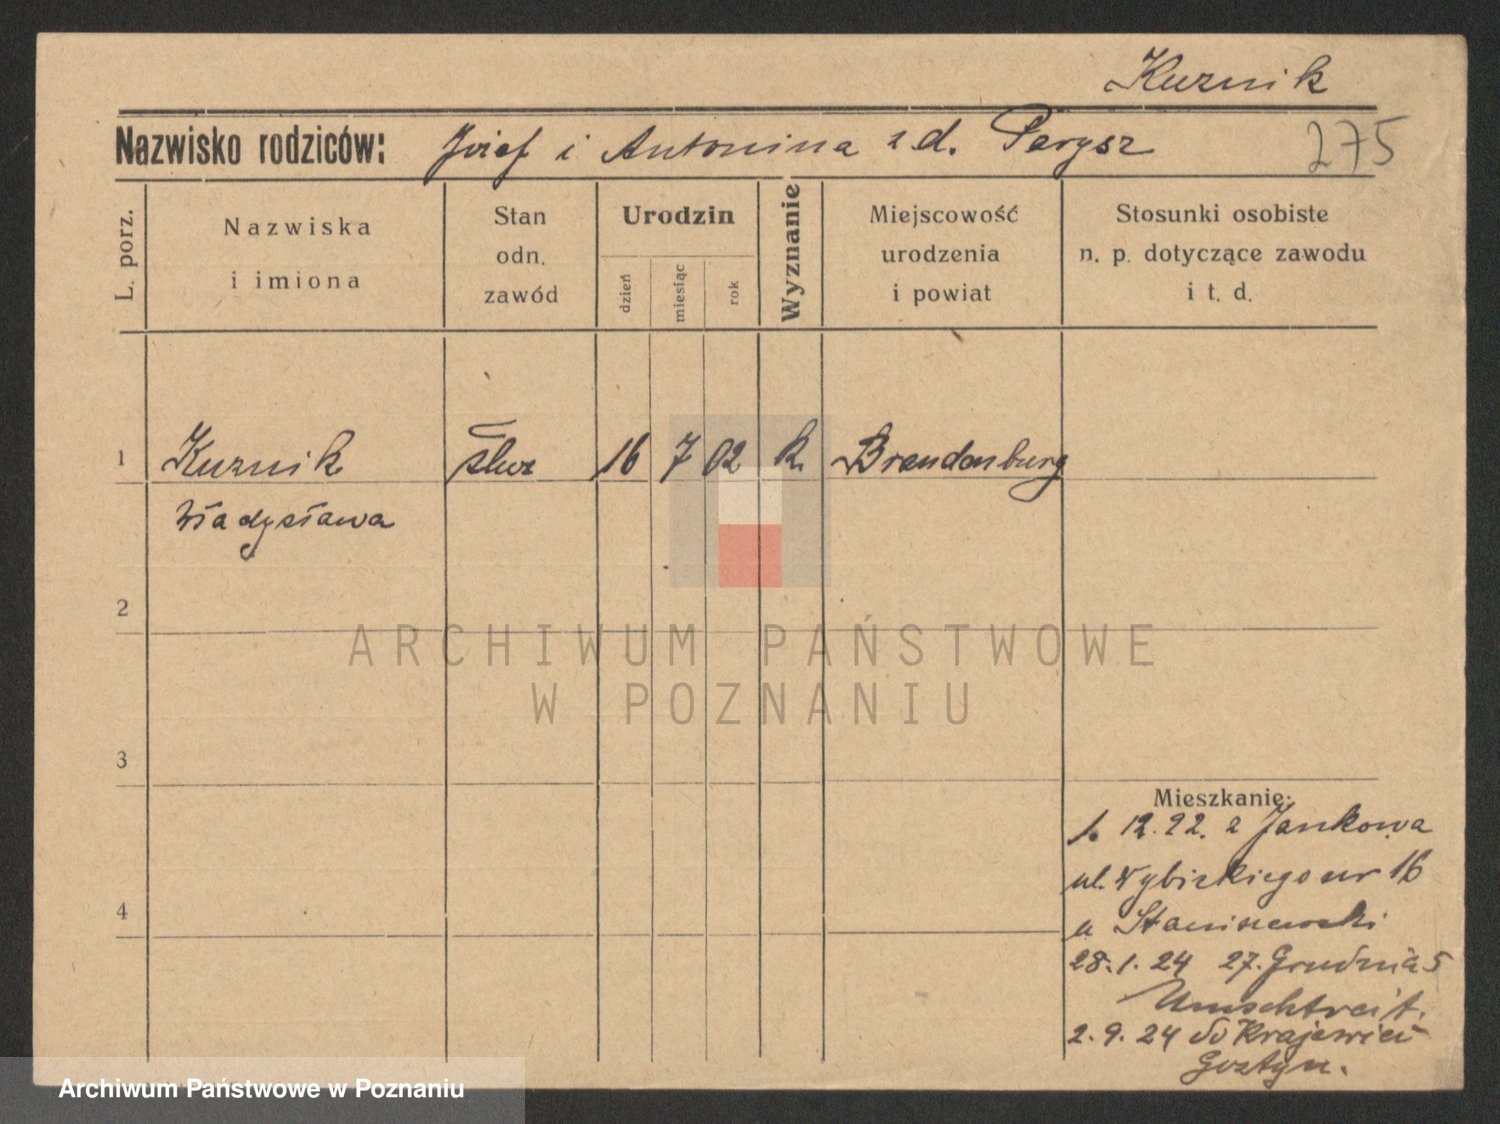 Kuznik
Nazwisko rodziców: Józef i Antonina z d. Parysz
275
L. porz.
Nazwiska
i imiona
Stan
odn.
zawód
Urodzin
dzień
miesiąc
rok
Wyznanie
Miejscowość
urodzenia
i powiat
Stosunki osobiste
n. p. dotyczące zawodu
i t. d.
1 Kuznik 16 7 02 k. Brandenburg
Władysława
2
ARCHIWUM PAŃSTWOWE
W POZNANIU
3
Mieszkanie:
1. 12. 22. z Jankowa
ul. Wybickiego nr 16
u Staniszewski
28. 1. 24 27. Grudnia 5
2. 9. 24 do Krajewic
Gostyn.
4
Archiwum Państwowe w Poznaniu